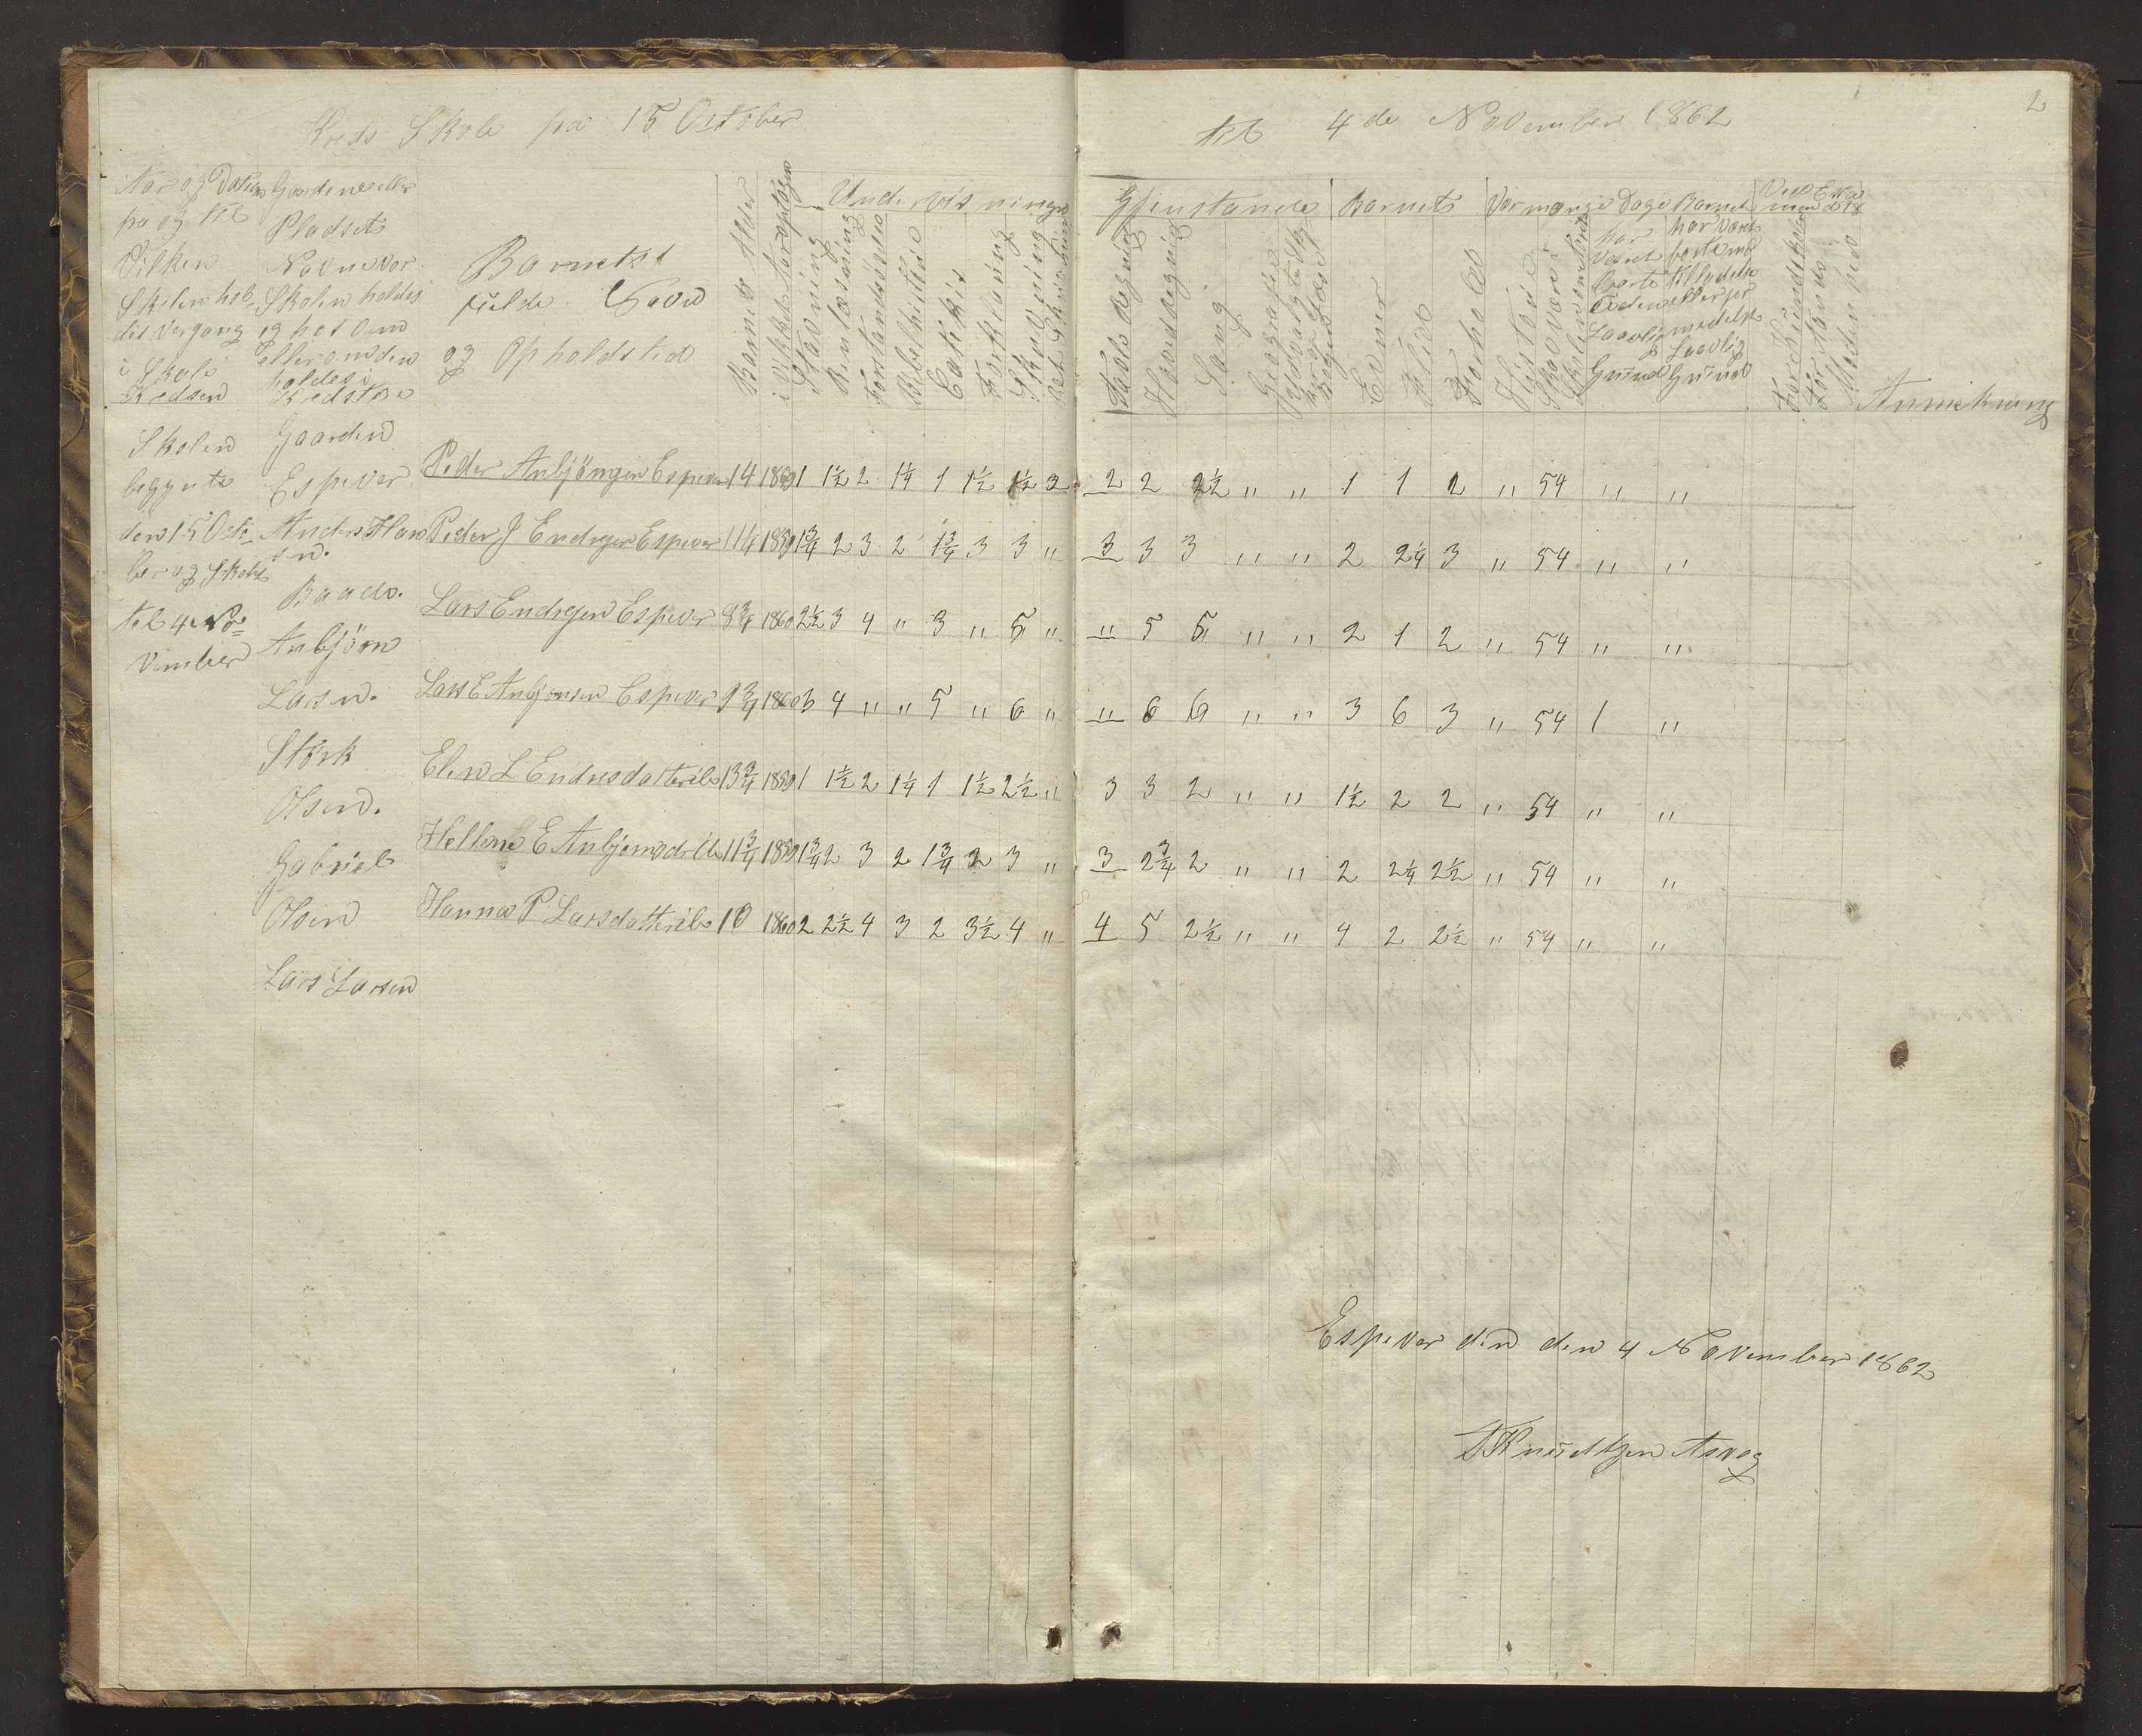 Kreds Skole fra 15 October
til 4de November 1862
2
Naar og Datum
fra og til
Vilken
Skolen hol
des Vergang
i Skole
Kredsen
Gaardene eller
Pladsets
Navn vor
Skolen holdes
og hos vem
eller om den
holdes i
Kredsen
Barnets
fulde Navn
og Opholdsted
Barnets Alder
Undervisnings
Stavning
Renlæsning
Forstandslæsn
Bibelhistorie
Catikis
Forklaring
Skrivning
Gjenstande
Tavleregning
Hovedregning
Sang
Geografie
Barnets
Evner
Flid
Forhold
Vormange Dage Barnet
Historie
har
været
borte
Uden
Laavlig
Grund
har været
borte med
tilladelse
eller for
medelst
Laavlig
Grund
Kundskaber
Anmerkning
Skolen
begynte
den 15 Octo
ber og Sluttes
til 4 No=
vember
Gaarden
Espever
Anders Han
sn.
Baads.
Anbjörn
Larsn.
Störk
Olsen.
Gabriel
Olsen
Lars Larsen
Peder Anbjöngen Espever 14 1859 1 1½ 2 1¼ 1 1½ 1½ 2 2 2 2½ " " 1 1 2 " 54 " "
Peder J Endresen Espever 11¼ 1859 1¾ 2 3 2 1¾ 3 3 " 3 3 3 " " 2 2¼ 3 " 54 " "
Lars Endresen Espever 9¾ 1860 2½ 3 4 " 3 " 5 " " 5 5 " " 2 1 2 " 54 " "
Lars E Anbjönsen Espever 9¾ 1860 3 4 " " 5 " 6 " " 6 6 " " 3 6 3 " 54 1 "
Elen L Endresdatter ib 13¾ 1859 1 1½ 2 1¼ 1 1½ 2½ " 3 3 2 " " 1½ 2 2 " 54 " "
Hellene E Anbjömsdr ib 11¾ 1859 1¾ 2 3 2 1¾ 2 3 " 3 2¾ 2 " " 2 2¼ 2½ " 54 " "
Hanna P Larsdatter ib 10 1860 2 2½ 4 3 2 3½ 4 " 4 5 2½ " " 4 2 2½ " 54 " "
Espever den den 4 November 1862
Knudtzen Asvog